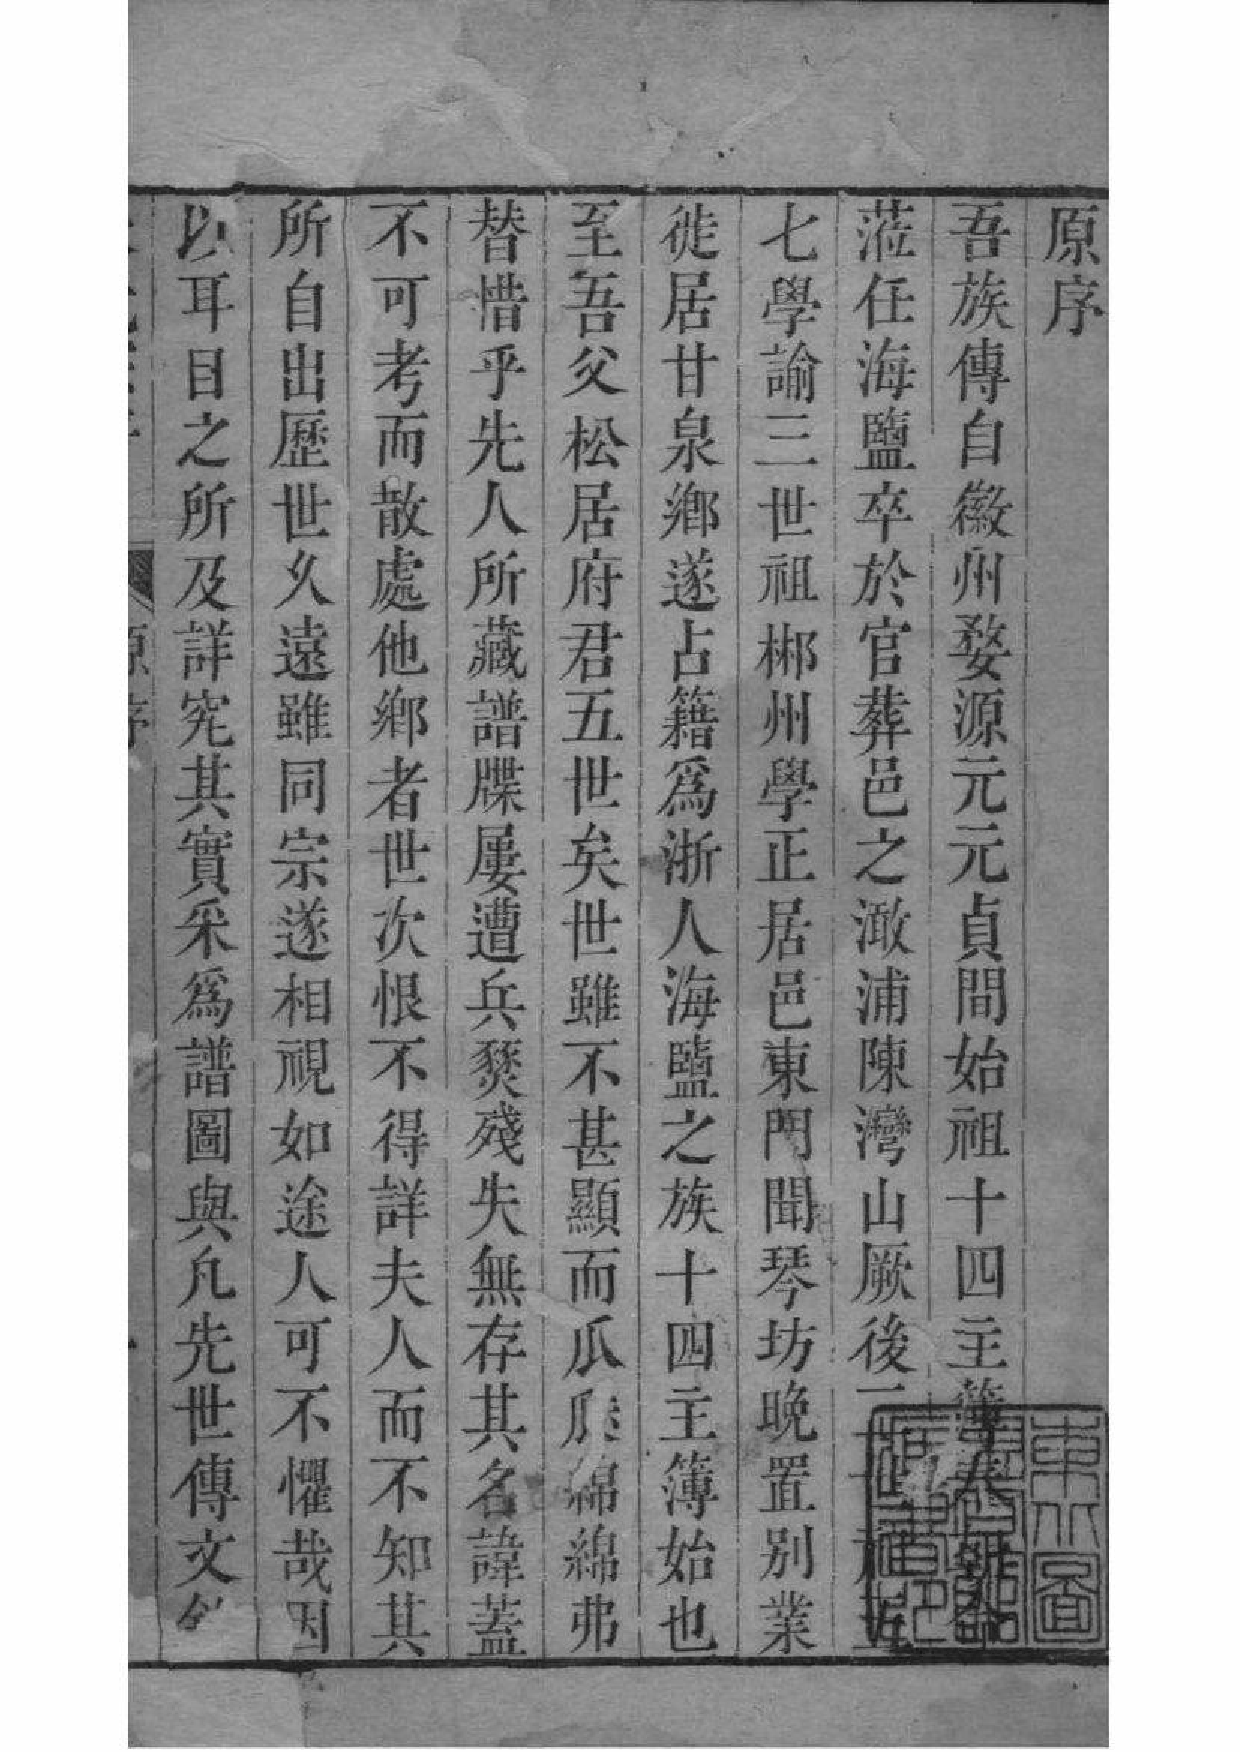 原序
吾族傳自徽州婺源元元貞間始祖十四主簿奉
蒞任海鹽卒於官葬邑之澉浦陳灣山厥後二世
七學諭三世祖郴州學正居邑東門聞琴坊晚置別業
徙居甘泉鄉遂占籍爲浙人海鹽之族十四主簿始也
至吾父松居府君五世矣世雖不甚顯而瓜瓞綿綿弗
替惜乎先人所藏譜牒屢遭兵燹殘失無存其名諱蓋
不可考而散處他鄉者世次恨不得詳夫人而不知其
所自出歷世久遠雖同宗遂相視如途人可不懼哉因
以耳目之所及詳究其實采爲譜圖與凡先世傳文
原序